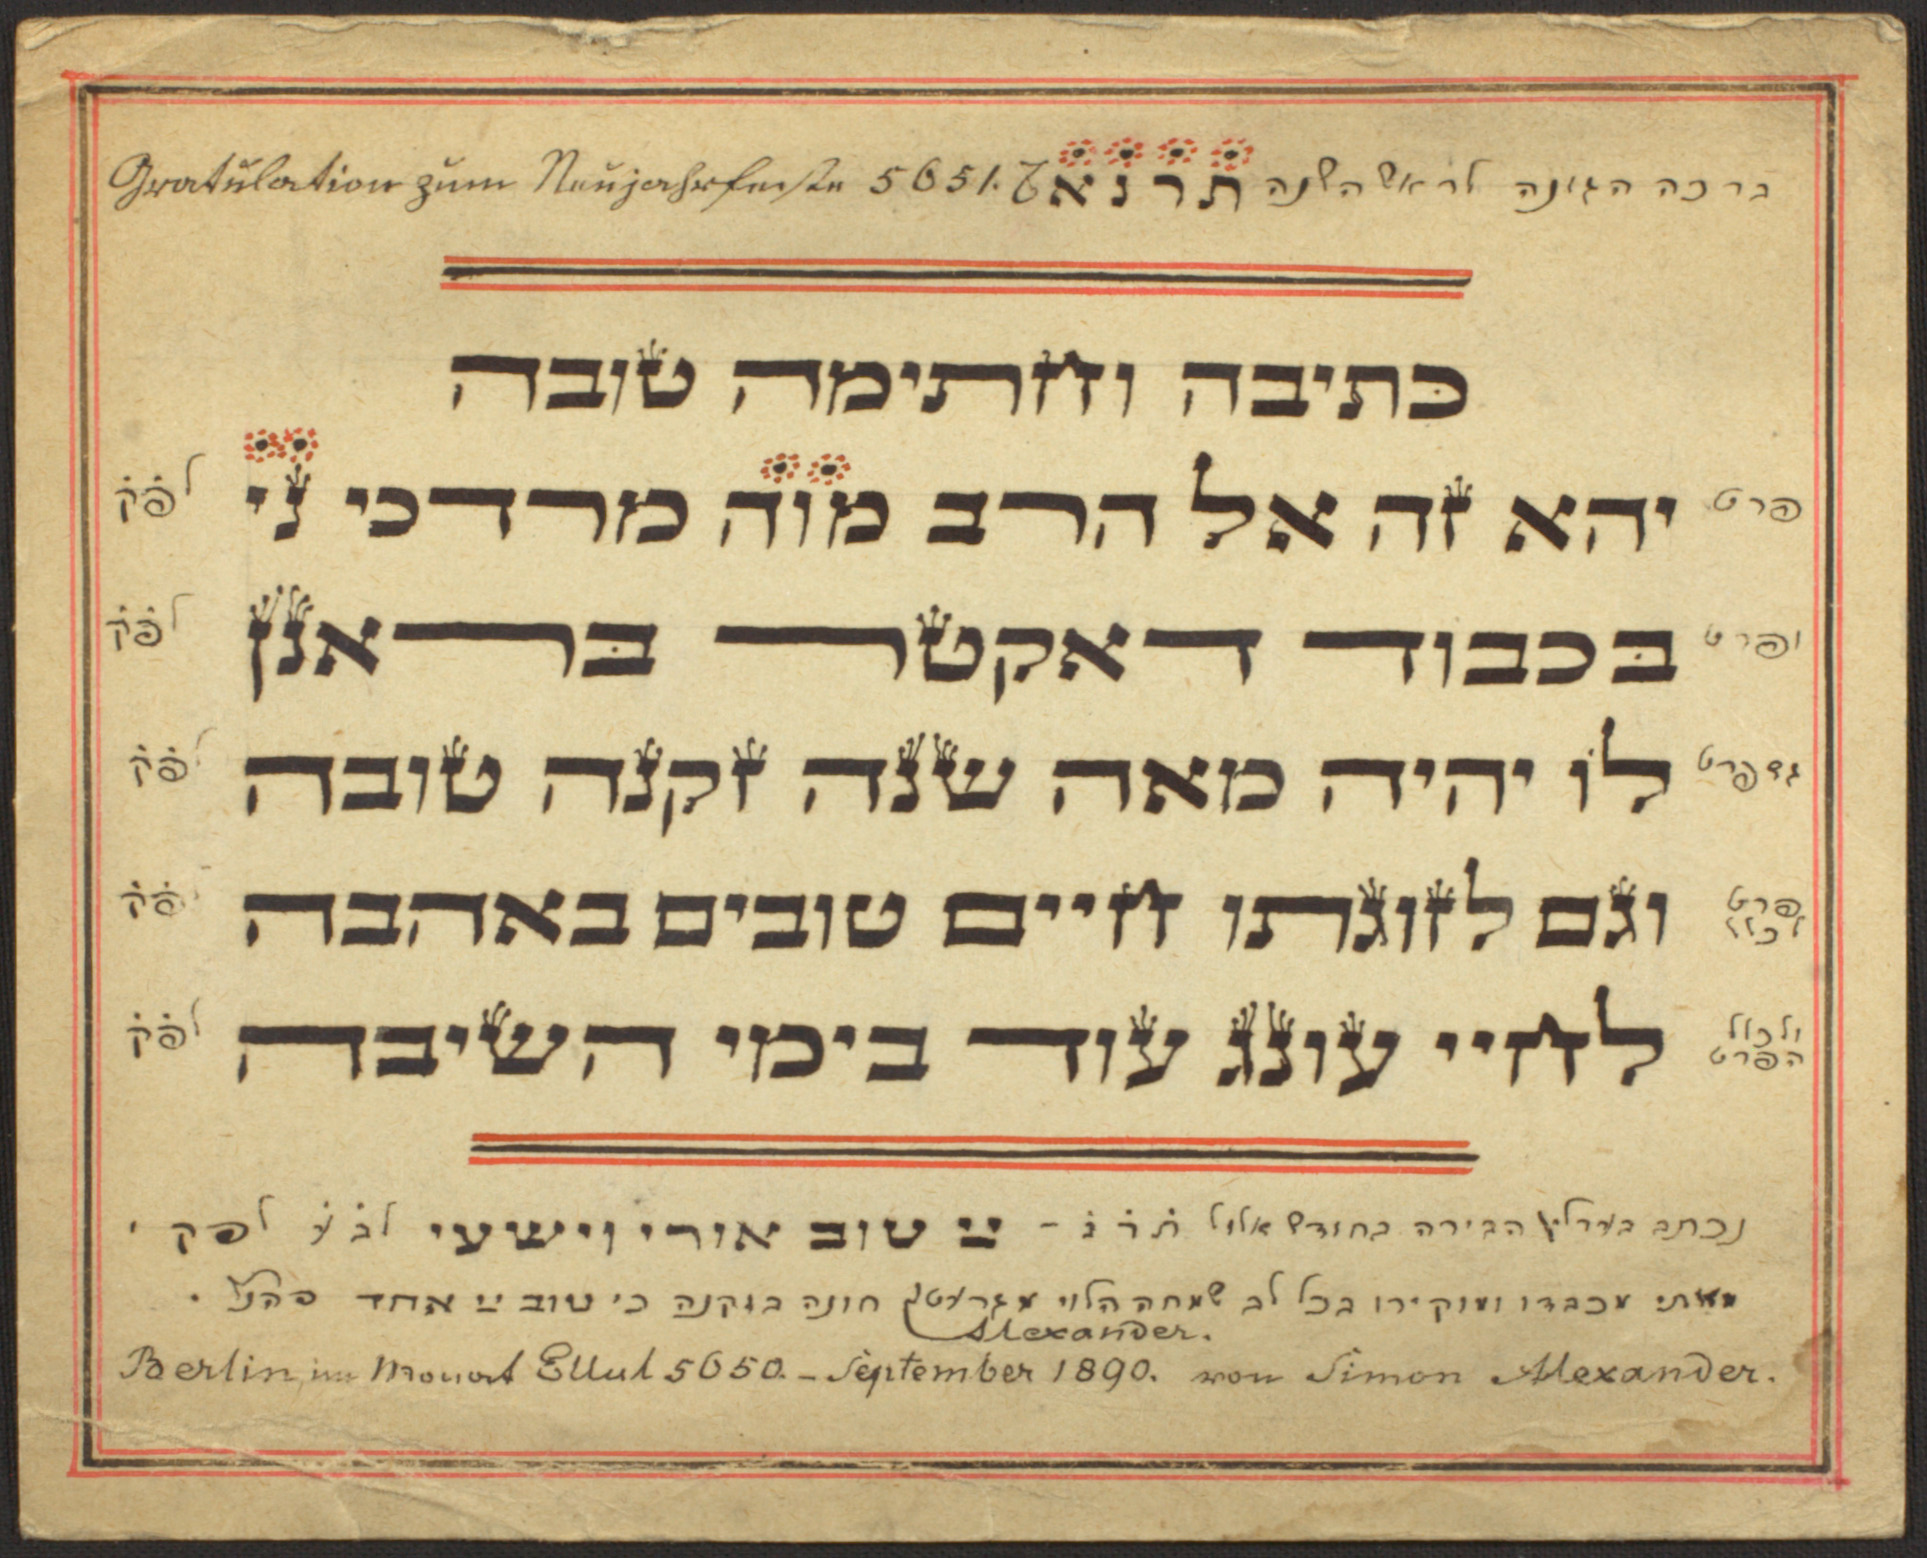 ברכה הגונה לראש השנה תרנא Gratulation zum Neujahrfeste 5651.
כתיבה וחתימה טובה
פרט יהא זה אל הרב מוה מרדכי ני לפק
ופרט בכבוד דאקטר בראנן לפק
גם פרט לו יהיה מאה שנה זקנה טובה לפק
פרט לכלל וגם לזוגתו חיים טובים באהבה פק
ולכלל הפרט לחיי עונג עוד בימי השיבה לפק
נכתב בערלין הבירה בחודש אלול תרנ – טוב אורי וישעי לפק
מאתי מכבדו ומוקירו בכל לב שמחה הלוי חונה בזקנה כי טוב אחד
Alexander.
Berlin, im Monat Ellul 5650. – September 1890. von Simon Alexander.